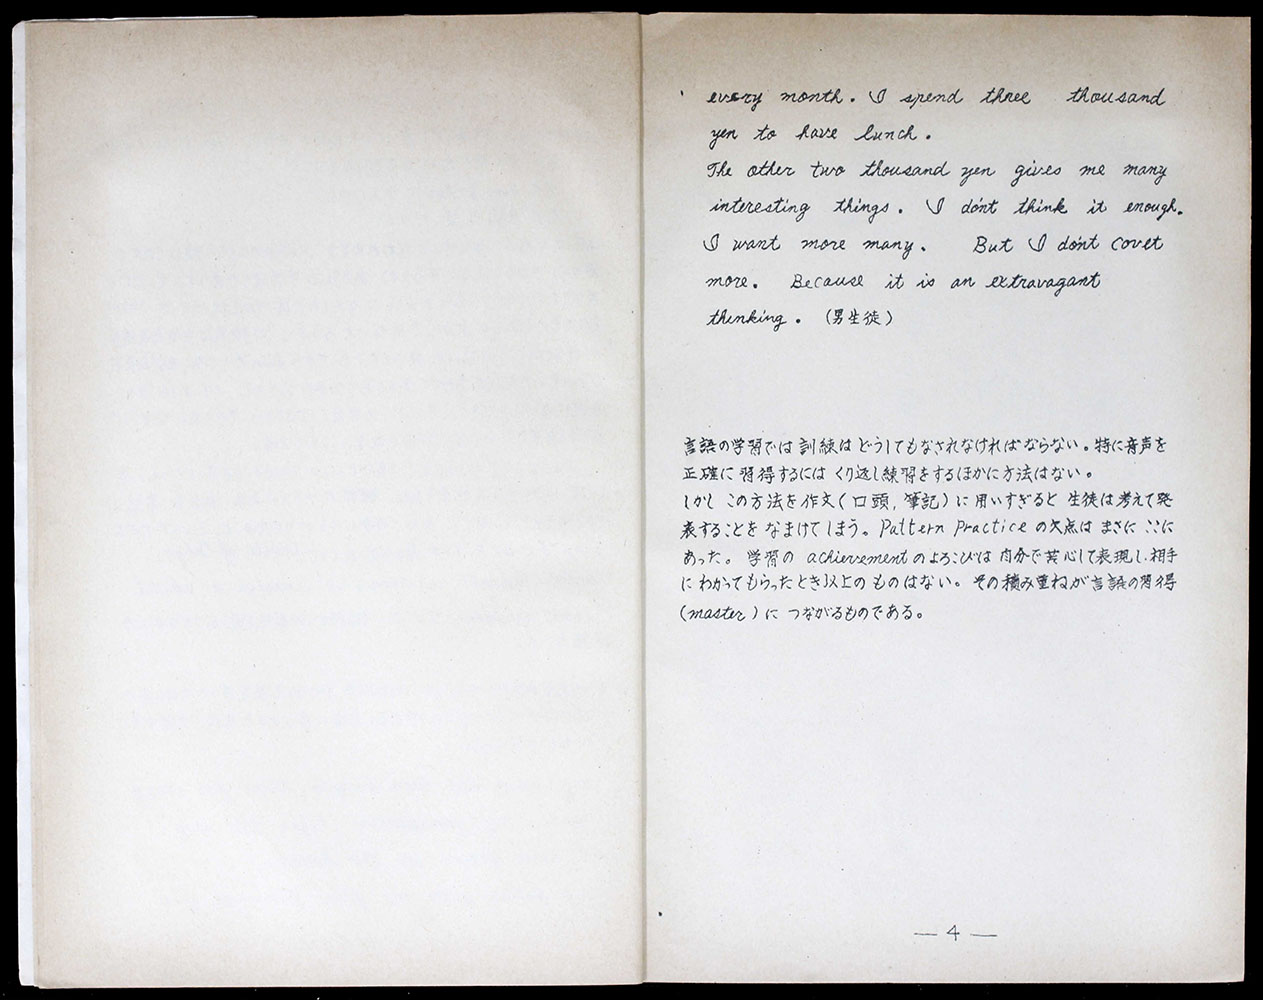 every month. I spend three thousand
yen to have lunch.
The other two thousand yen gives me many
interesting things. I don't think it enough.
I want more many. But I don't covet
more. Because it is an extravagant
thinking. (男生徒)
言語の学習では訓練はどうしてもなされなければならない。特に音声を
正確に習得するにはくり返し練習をするほかに方法はない。
しかしこの方法を作文(口頭,筆記)に用いすぎると生徒は考えて発
表することをなまけてしまう。Pattern Practiceの欠点はまさにここに
あった。学習のachievementのよろこびは自分で苦心して表現し相手
にわかってもらったとき以上のものはない。その積み重ねが言語の習得
(master)につながるものである。
— 4 —